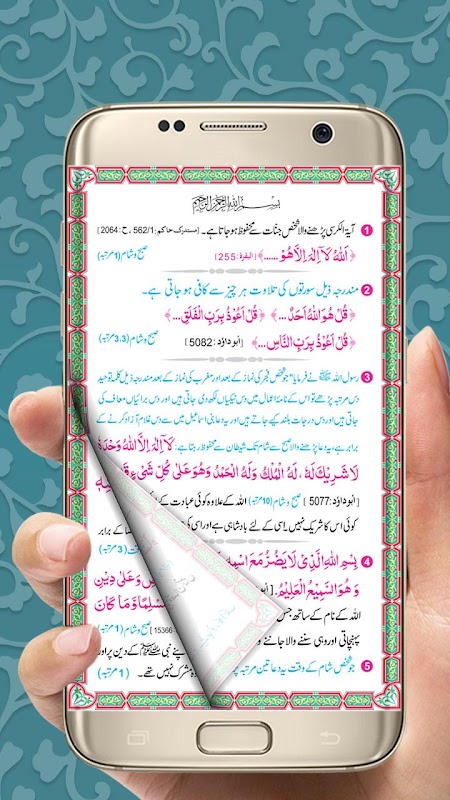 بسم اللہ الرحمن الرحیم
1 آیۃ الکرسی پڑھنے والا شخص جنات سے محفوظ ہو جاتا ہے۔ [مستدرک حاکم : 562/1 ، ح : 2064]
﴿ اَللّٰهُ لَآ اِلٰهَ اِلَّا هُوَ ......﴾ [البقرۃ : 255] صبح و شام (1 مرتبہ)
2 مندرجہ ذیل سورتوں کی تلاوت ہر چیز سے کافی ہو جاتی ہے۔
﴿ قُلْ هُوَ اللّٰهُ اَحَدٌ...﴾ ﴿ قُلْ اَعُوْذُ بِرَبِّ الْفَلَقِ...﴾
﴿ قُلْ اَعُوْذُ بِرَبِّ النَّاسِ...﴾ [ابوداؤد : 5082] صبح و شام (3،3 مرتبہ)
3 رسول اللہ ﷺ نے فرمایا "جو شخص فجر کی نماز کے بعد اور مغرب کی نماز کے بعد مندرجہ ذیل کلمہ توحید
دس مرتبہ پڑھے تو اس کے نامۂ اعمال میں دس نیکیاں لکھی جاتی ہیں اور دس برائیاں معاف کی
جاتی ہیں اور دس درجات بلند کیے جاتے ہیں اور یہ بنی اسماعیل میں سے دس غلام آزاد کرنے کے
برابر ہے، یہ دعا پڑھنے والا صبح سے شام تک شیطان سے محفوظ رہتا ہے: لَآ اِلٰهَ اِلَّا اللّٰهُ وَحْدَهٗ
لَا شَرِيْكَ لَهٗ، لَهُ الْمُلْكُ وَلَهُ الْحَمْدُ وَهُوَ عَلٰى كُلِّ شَيْءٍ قَدِيْرٌ
[ابوداؤد : 5077] صبح و شام (10 مرتبہ) اللہ کے علاوہ کوئی عبادت کے
کوئی اس کا شریک نہیں۔ اسی کے لئے بادشاہی ہے اور اسی
4 بِسْمِ اللّٰهِ الَّذِيْ لَا يَضُرُّ مَعَ اسْمِهٖ
وَهُوَ السَّمِيْعُ الْعَلِيْمُ
اللہ کے نام کے ساتھ جس
پہنچاتی اور وہی سننے والا جاننے
5 جو شخص شام کے وقت یہ دعا تین مرتبہ
کے برابر
(3 مرتبہ)
وَعَلٰى دِيْنِ
مُسْلِمًا وَّمَا كَانَ
صبح و شام (1 مرتبہ) 15366
اپنے نبی ﷺ کے دین پر اور
مشرک نہیں تھے۔ (1 مرتبہ)